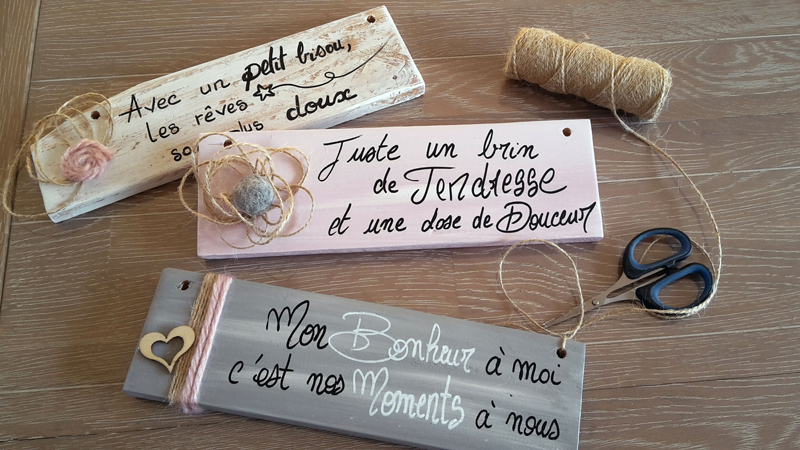 Avec un petit bisou,
les rêves
plus doux
Juste un brin
de Tendresse
et une dose de Douceur
Mon Bonheur à moi
c'est nos Moments à nous